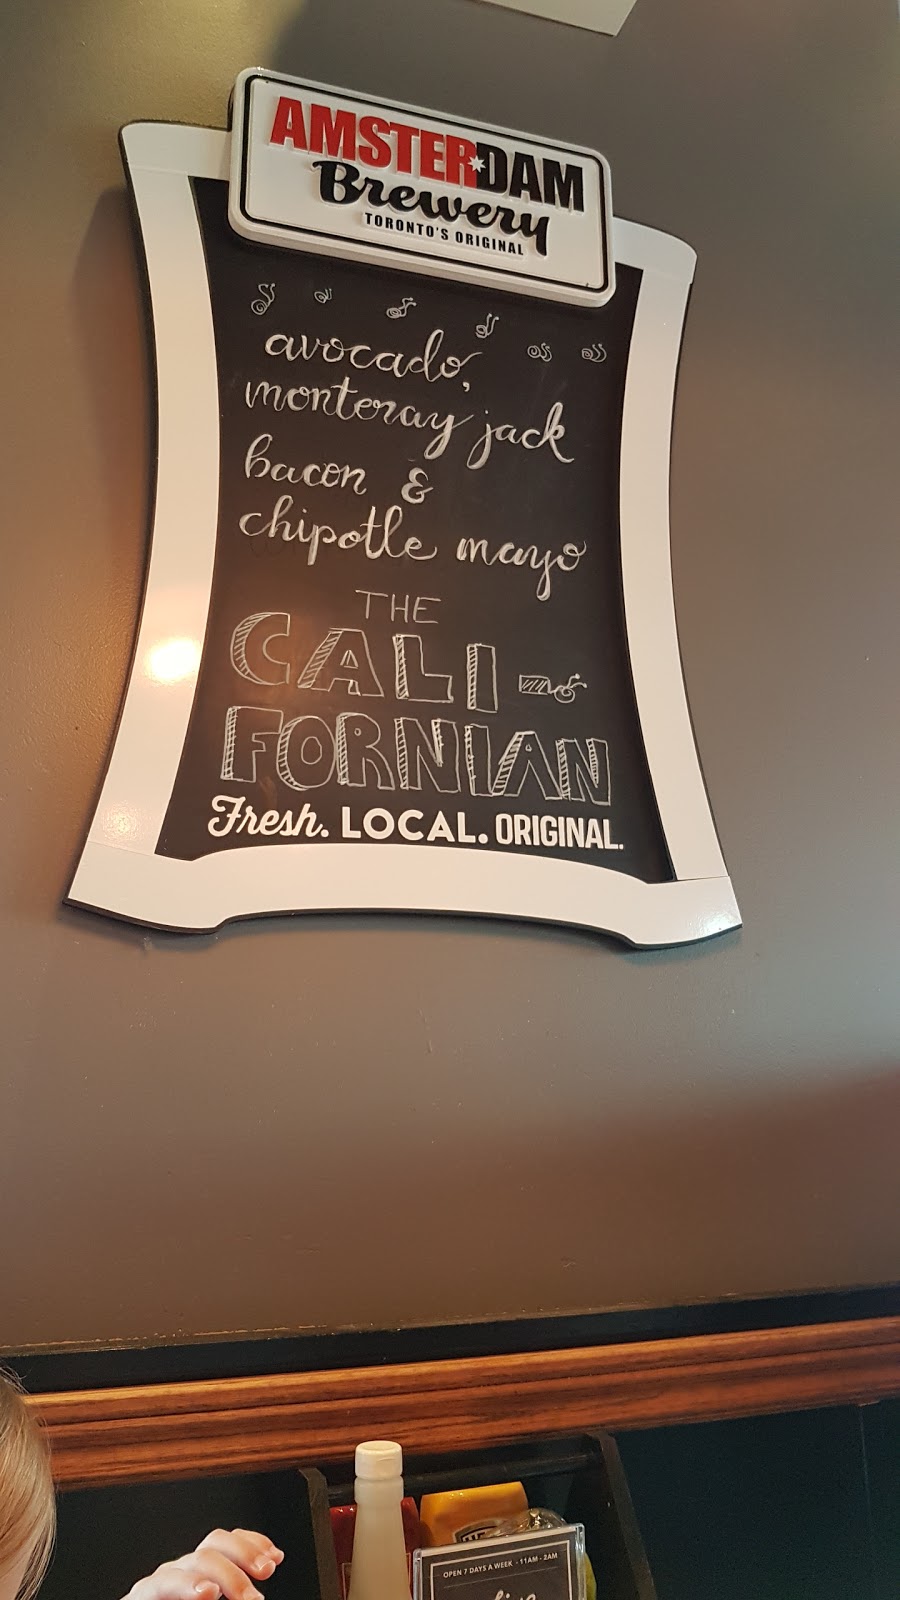 AMSTERDAM
Brewery
TORONTO'S ORIGINAL
avocado,
monteray jack
bacon &
chipotle mayo
THE
CALI-
FORNIAN
Fresh. LOCAL. ORIGINAL.
OPEN 7 DAYS A WEEK - 11AM - 2AM